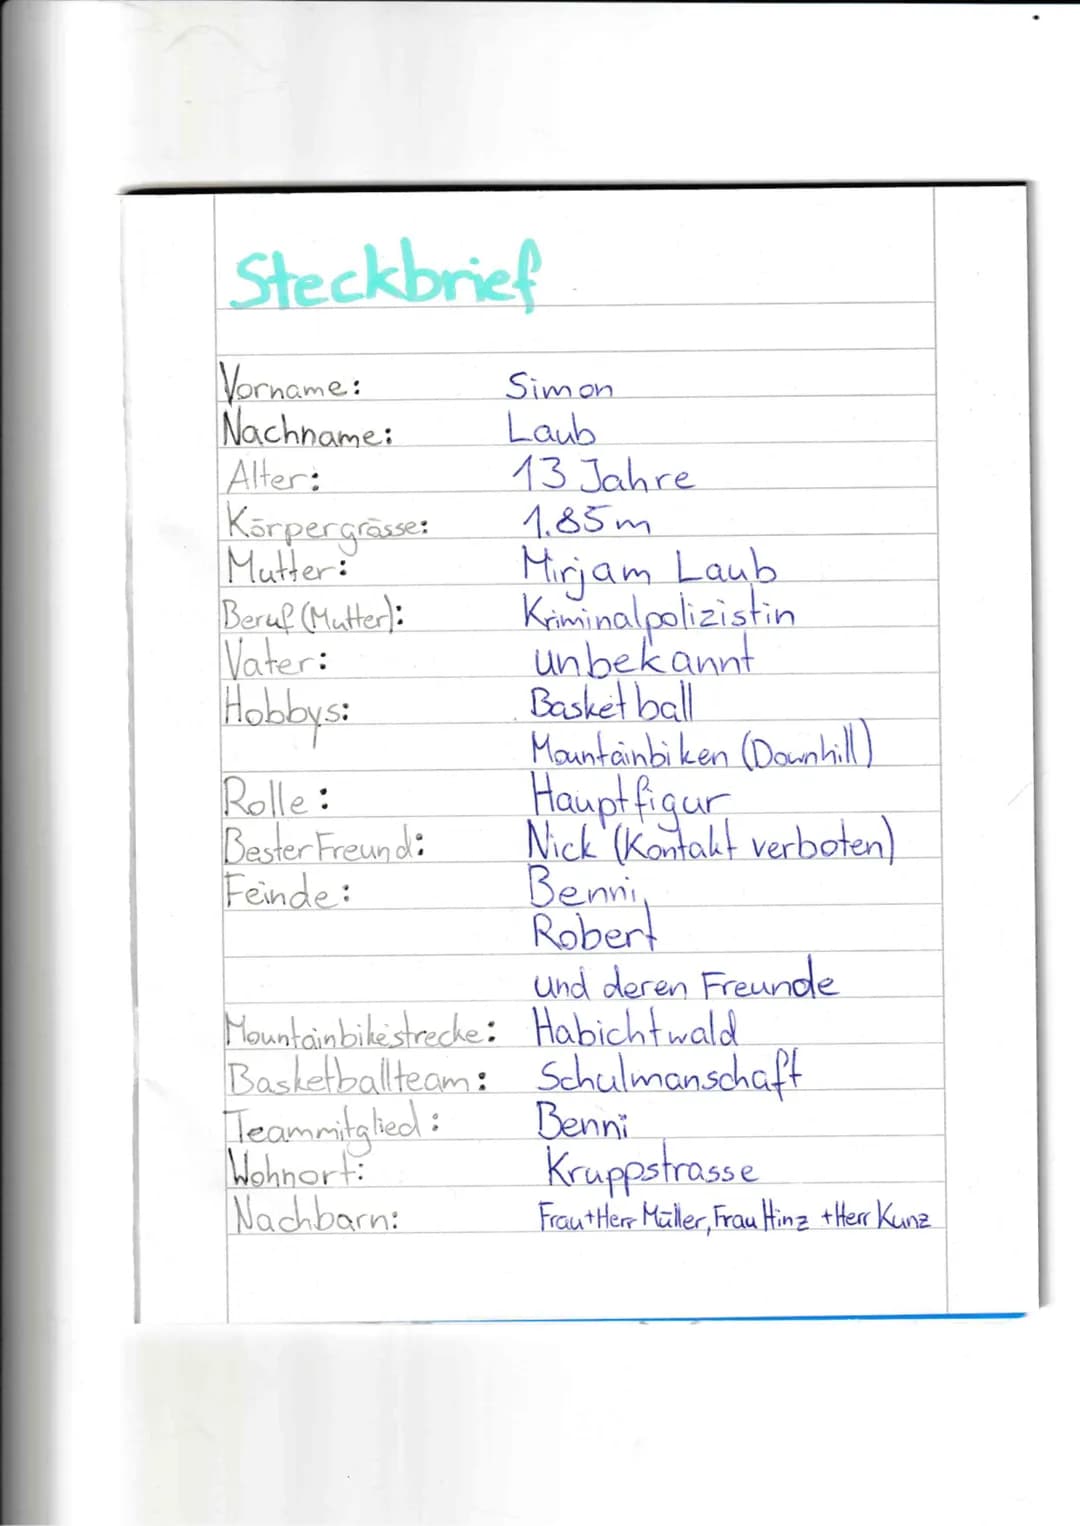 Steckbrief
Vorname: Simon
Nachname: Laub
Alter: 13 Jahre
Körpergrösse: 1.85m
Mutter: Mirjam Laub
Beruf (Mutter): Kriminalpolizistin
Vater: unbekannt
Hobbys: Basketball
Mountainbiken (Downhill)
Rolle: Hauptfigur
Bester Freund: Nick (Kontakt verboten)
Feinde: Benni,
Robert
und deren Freunde
Mountainbikestrecke: Habichtwald
Basketballteam: Schulmanschaft
Teammitglied: Benni
Wohnort: Kruppstrasse
Nachbarn: Frau+Herr Müller, Frau Hinz +Herr Kunz